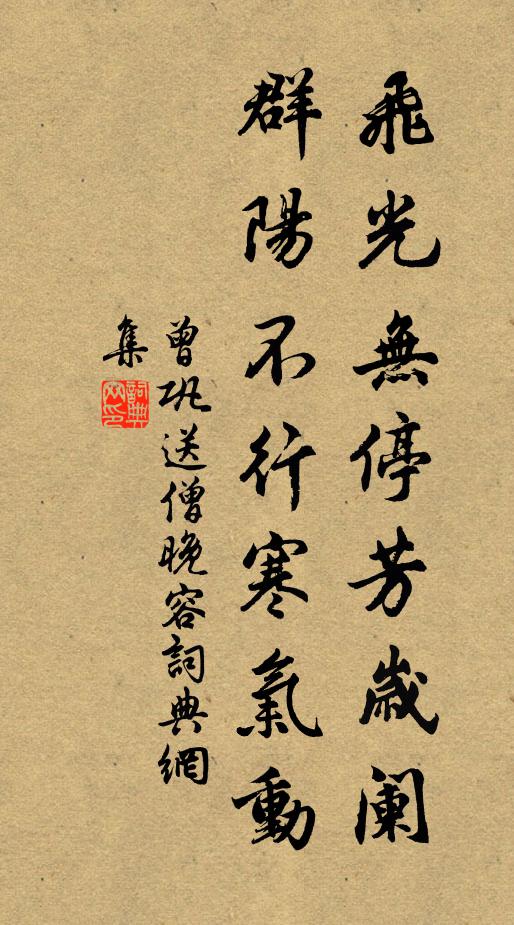 飛光無停芳歲闌
群陽不行寒氣動
曾巩送僧晚容詞典網
集
詞典網印